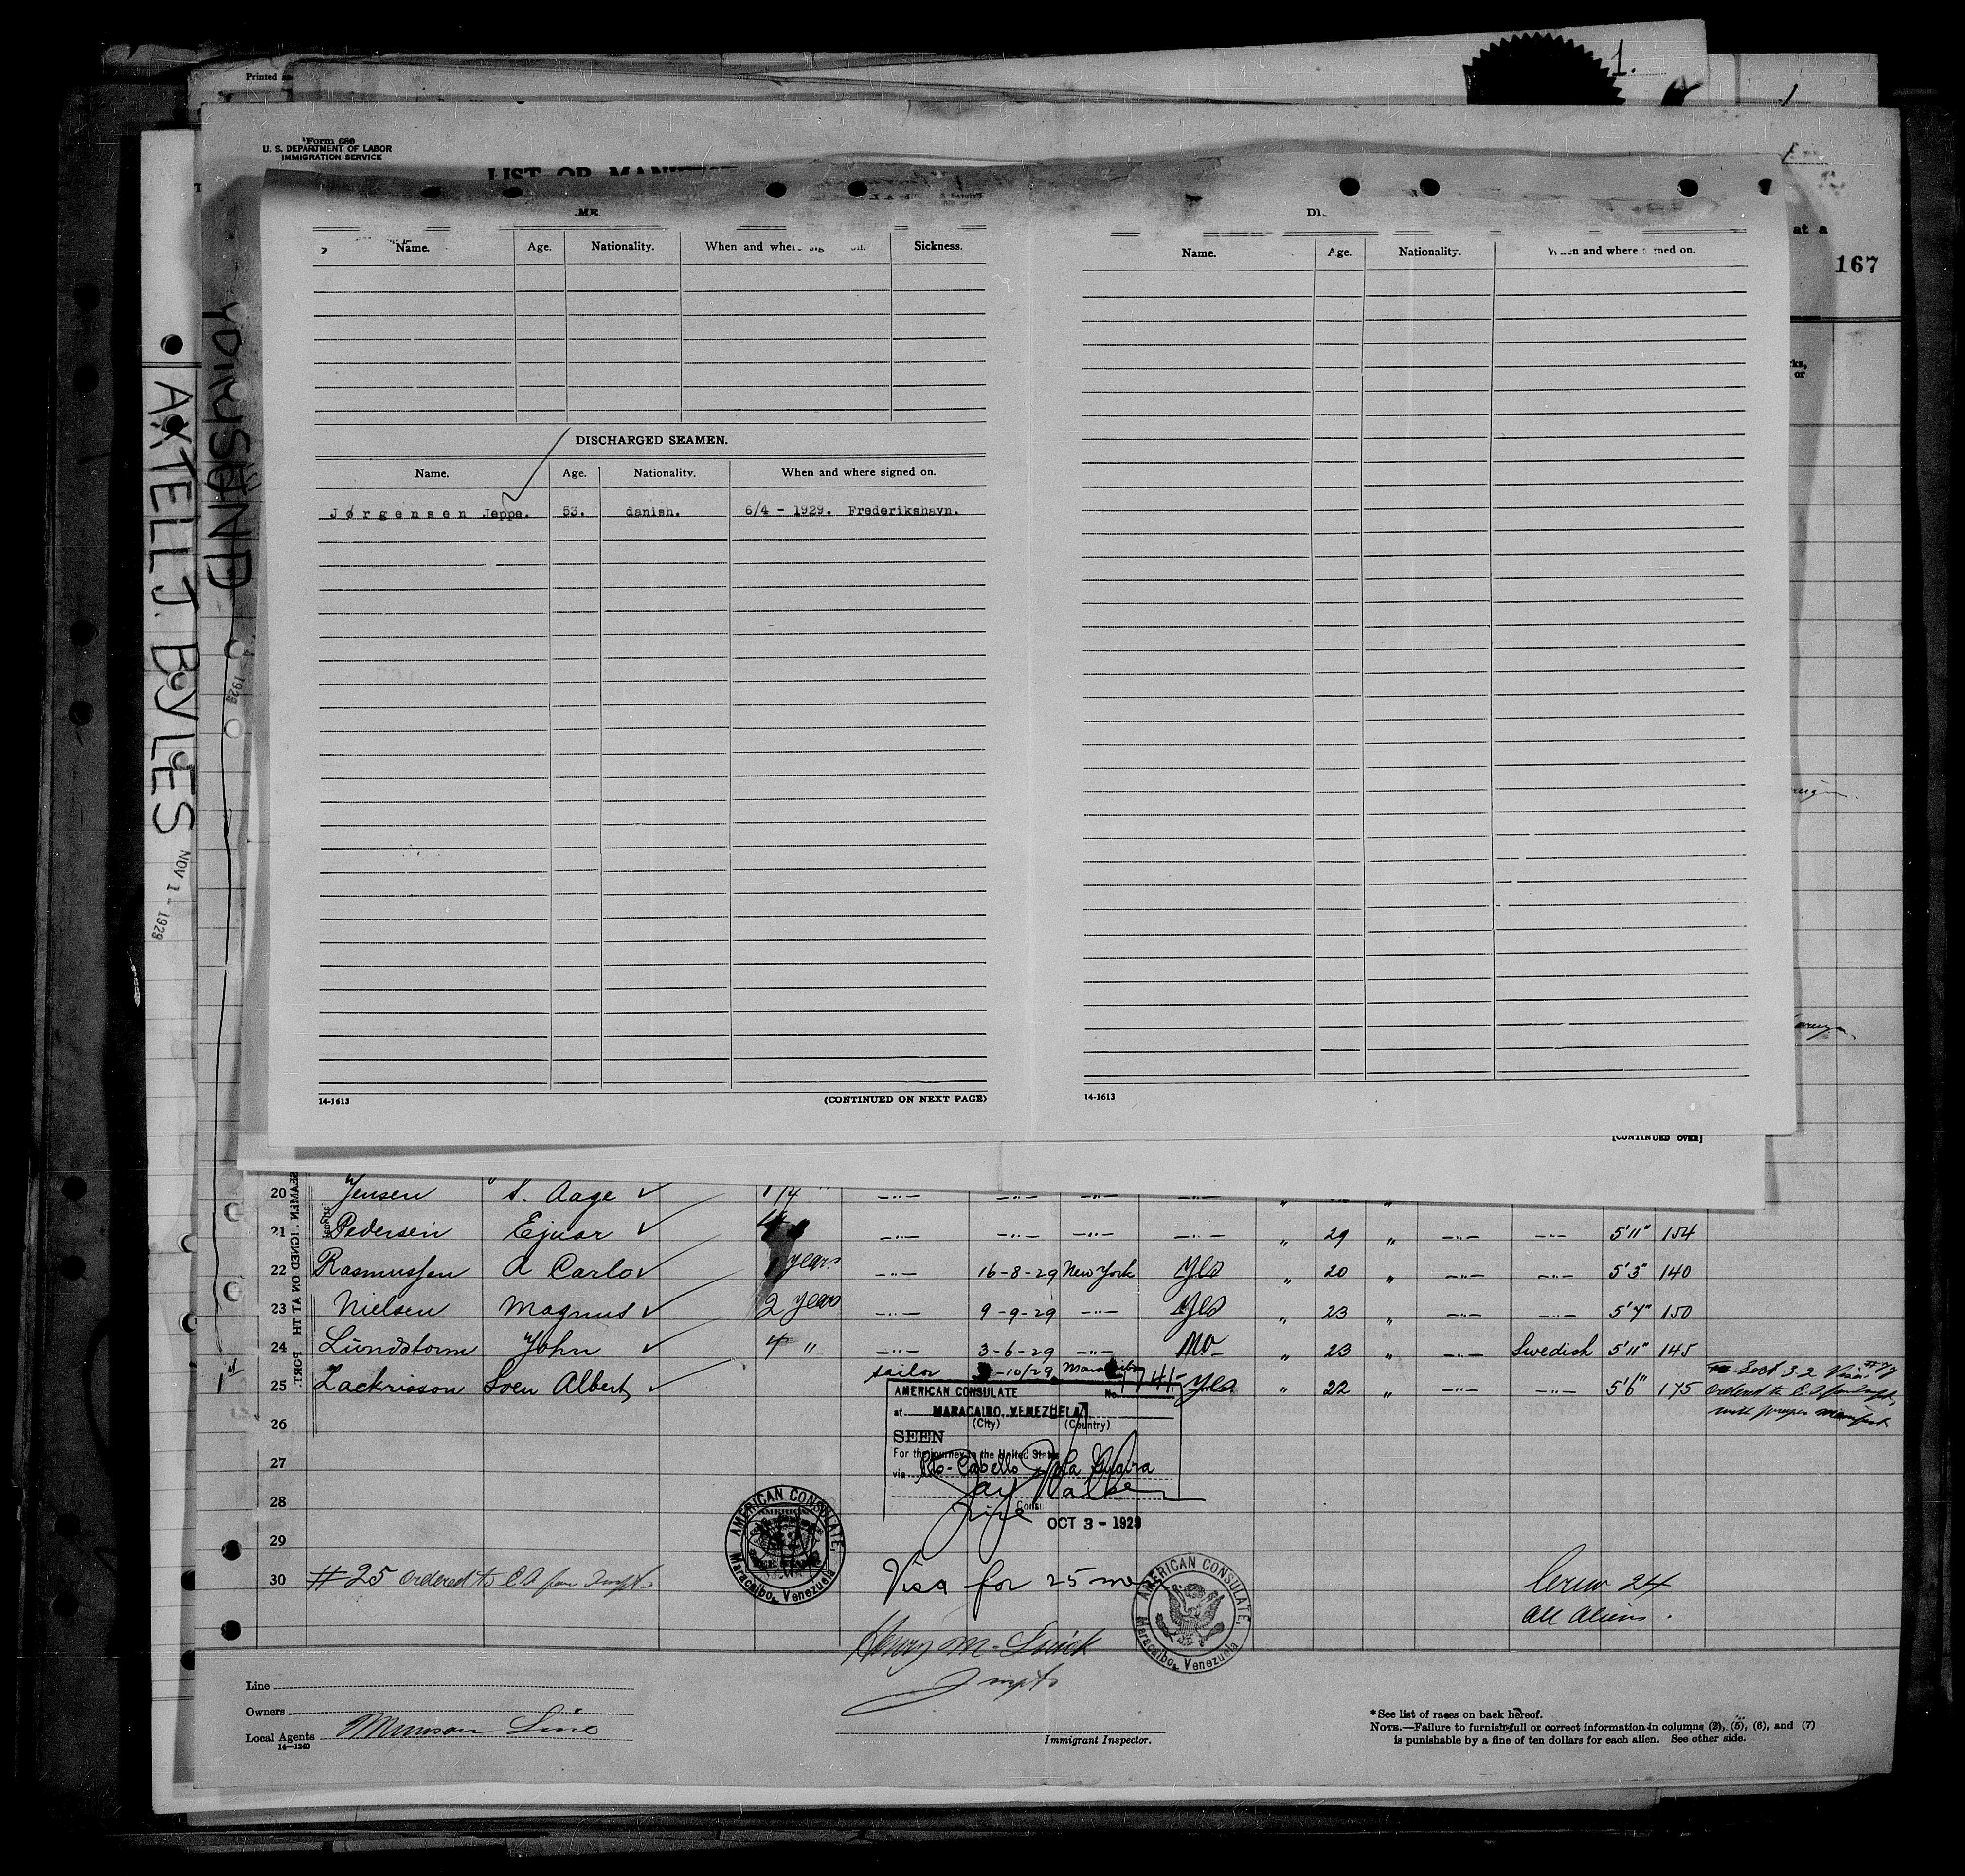 Printed
1.
Form 680
U. S. DEPARTMENT OF LABOR
IMMIGRATION SERVICE
LIST OR
at a
167
Name. Age. Nationality. When and Sickness.
Name. Age. Nationality. When and where signed on.
DISCHARGED SEAMEN.
Name. Age. Nationality. When and where signed on.
Jørgensen Jeppe. 53. danish. 6/4 - 1929. Frederikshavn.
14-1613 (CONTINUED ON NEXT PAGE) 14-1613
[CONTINUED OVER]
AXTELL J. BYLES NOV 1 - 1929
1929
20 Jensen S. Aage ✓ 1/4 " —"— —"— —"— —"—
21 Pedersen Ejnar ✓ —"— —"— —"— —"— " 29 " —"— —"— 5'11" 154
22 Rasmussen A Carlo ✓ years —"— 16-8-29 New York Yes " 20 " —"— —"— 5'3" 140
23 Nielsen Magnus ✓ 2 years —"— 9-9-29 —"— Yes " 23 " —"— —"— 5'7" 150
24 Lundstorm John ✓ 4 " —"— 3-6-29 —"— No " 23 " —"— Swedish 5'11" 145
25 Zackrisson Sven Albert ✓ sailor -10/29 Yes " 22 " —"— —"— 5'6" 175
ordered to
with proper manifest
AMERICAN CONSULATE No. 1741
at MARACAIBO, VENEZUELA
(City) (Country)
SEEN
For the journey to the United States
via Pto-Cabello La Guaira
Jay Walker
Vice Consul
OCT 3 - 1929
26
27
28
29
30 #25 ordered to
AMERICAN CONSULATE, Maracaibo, Venezuela
Visa for 25 men
AMERICAN CONSULATE, Maracaibo, Venezuela
Crew 24
all aliens.
Henry M.
Line
Owners
Local Agents Munson Line
14—1240
Immigrant Inspector.
*See list of races on back hereof.
NOTE.—Failure to furnish full or correct information in columns (2), (5), (6), and (7)
is punishable by a fine of ten dollars for each alien. See other side.